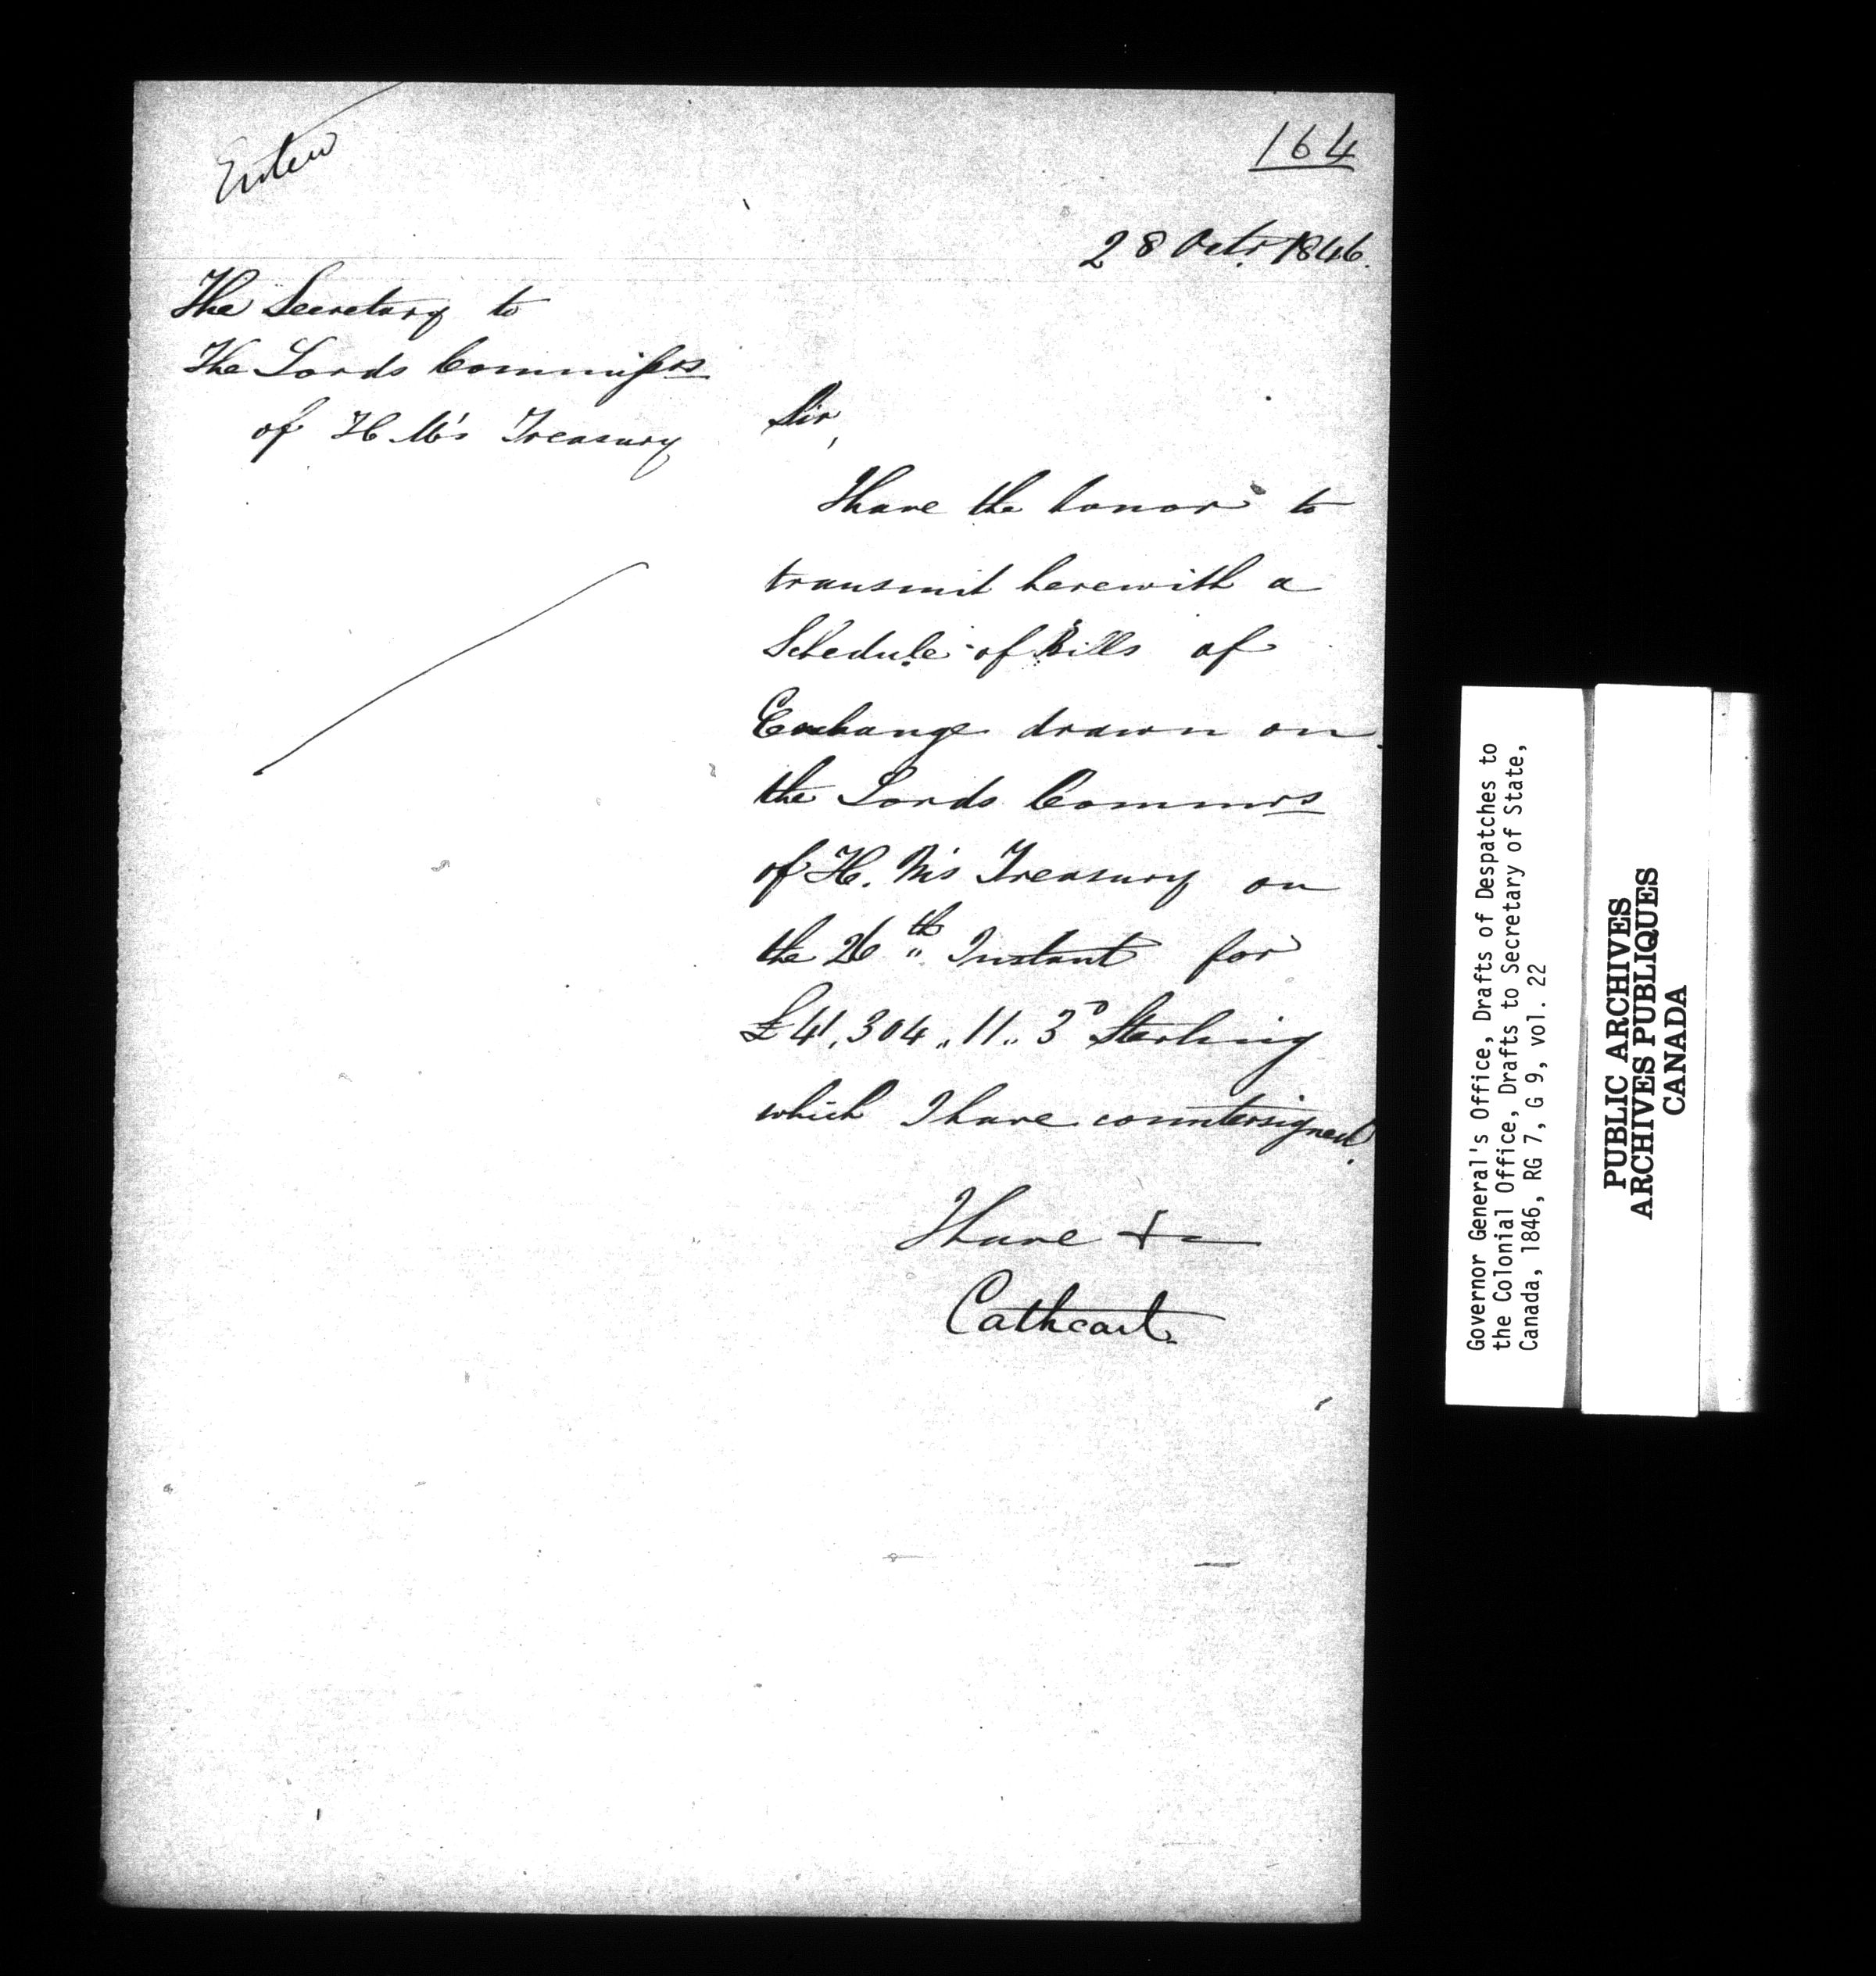 Enter
164
28 Octr. 1846.
The Secretary to
The Lords Commissrs
of H M's Treasury
Sir,
I have the honor to
transmit herewith a
Schedule of Bills of
Exchange drawn on
the Lords Commrs
of H. M's Treasury on
the 26th Instant for
£41,304,, 11,, 3D Sterling
which I have countersigned.
I have &c
Cathcart
Governor General's Office, Drafts of Despatches to
the Colonial Office, Drafts to Secretary of State,
Canada, 1846, RG 7, G 9, vol. 22
PUBLIC ARCHIVES
ARCHIVES PUBLIQUES
CANADA